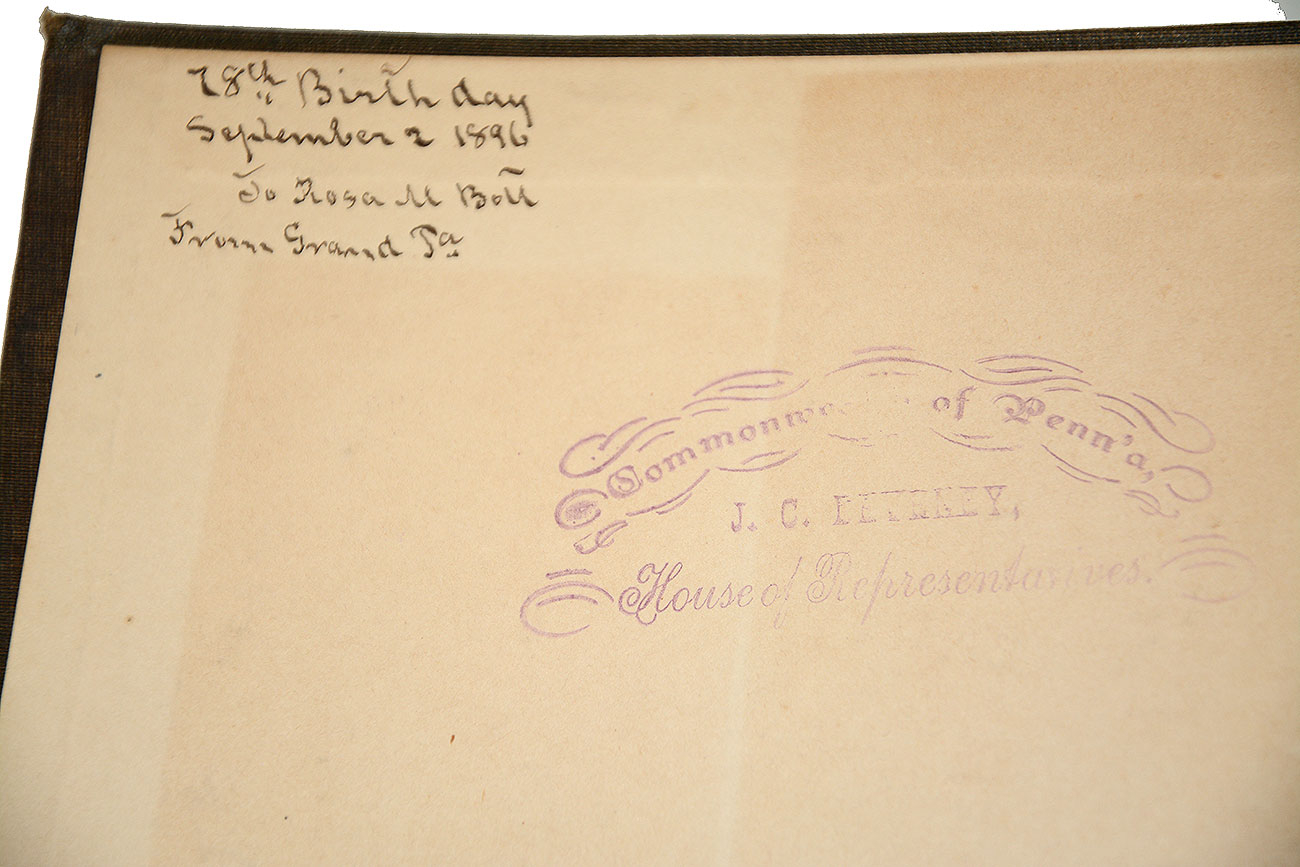 78th Birth day
September 2 1896
To Rosa M Bott
From Grand Pa
Commonwealth of Penn'a,
J. C.
House of Representatives.